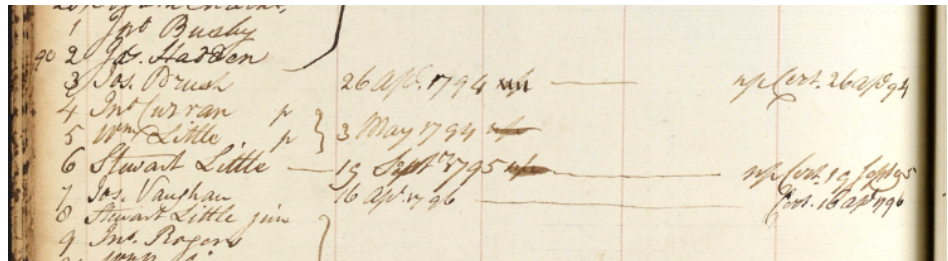 1 Jno Busby
90 2 Jas. Hadden
3 Jos. Brush 26 Apl. 1794 np Cert. 26 Apl 94
4 Jno Curran p
5 Wm Little p 3 May 1794
6 Stewart Little 19 Septr 1795 np Cert. 19 Sept 95
7 Jos. Vaughan 16 Apl. 1796 Cert. 16 Apl 1796
8 Stewart Little jun
9 Jno. Rogers